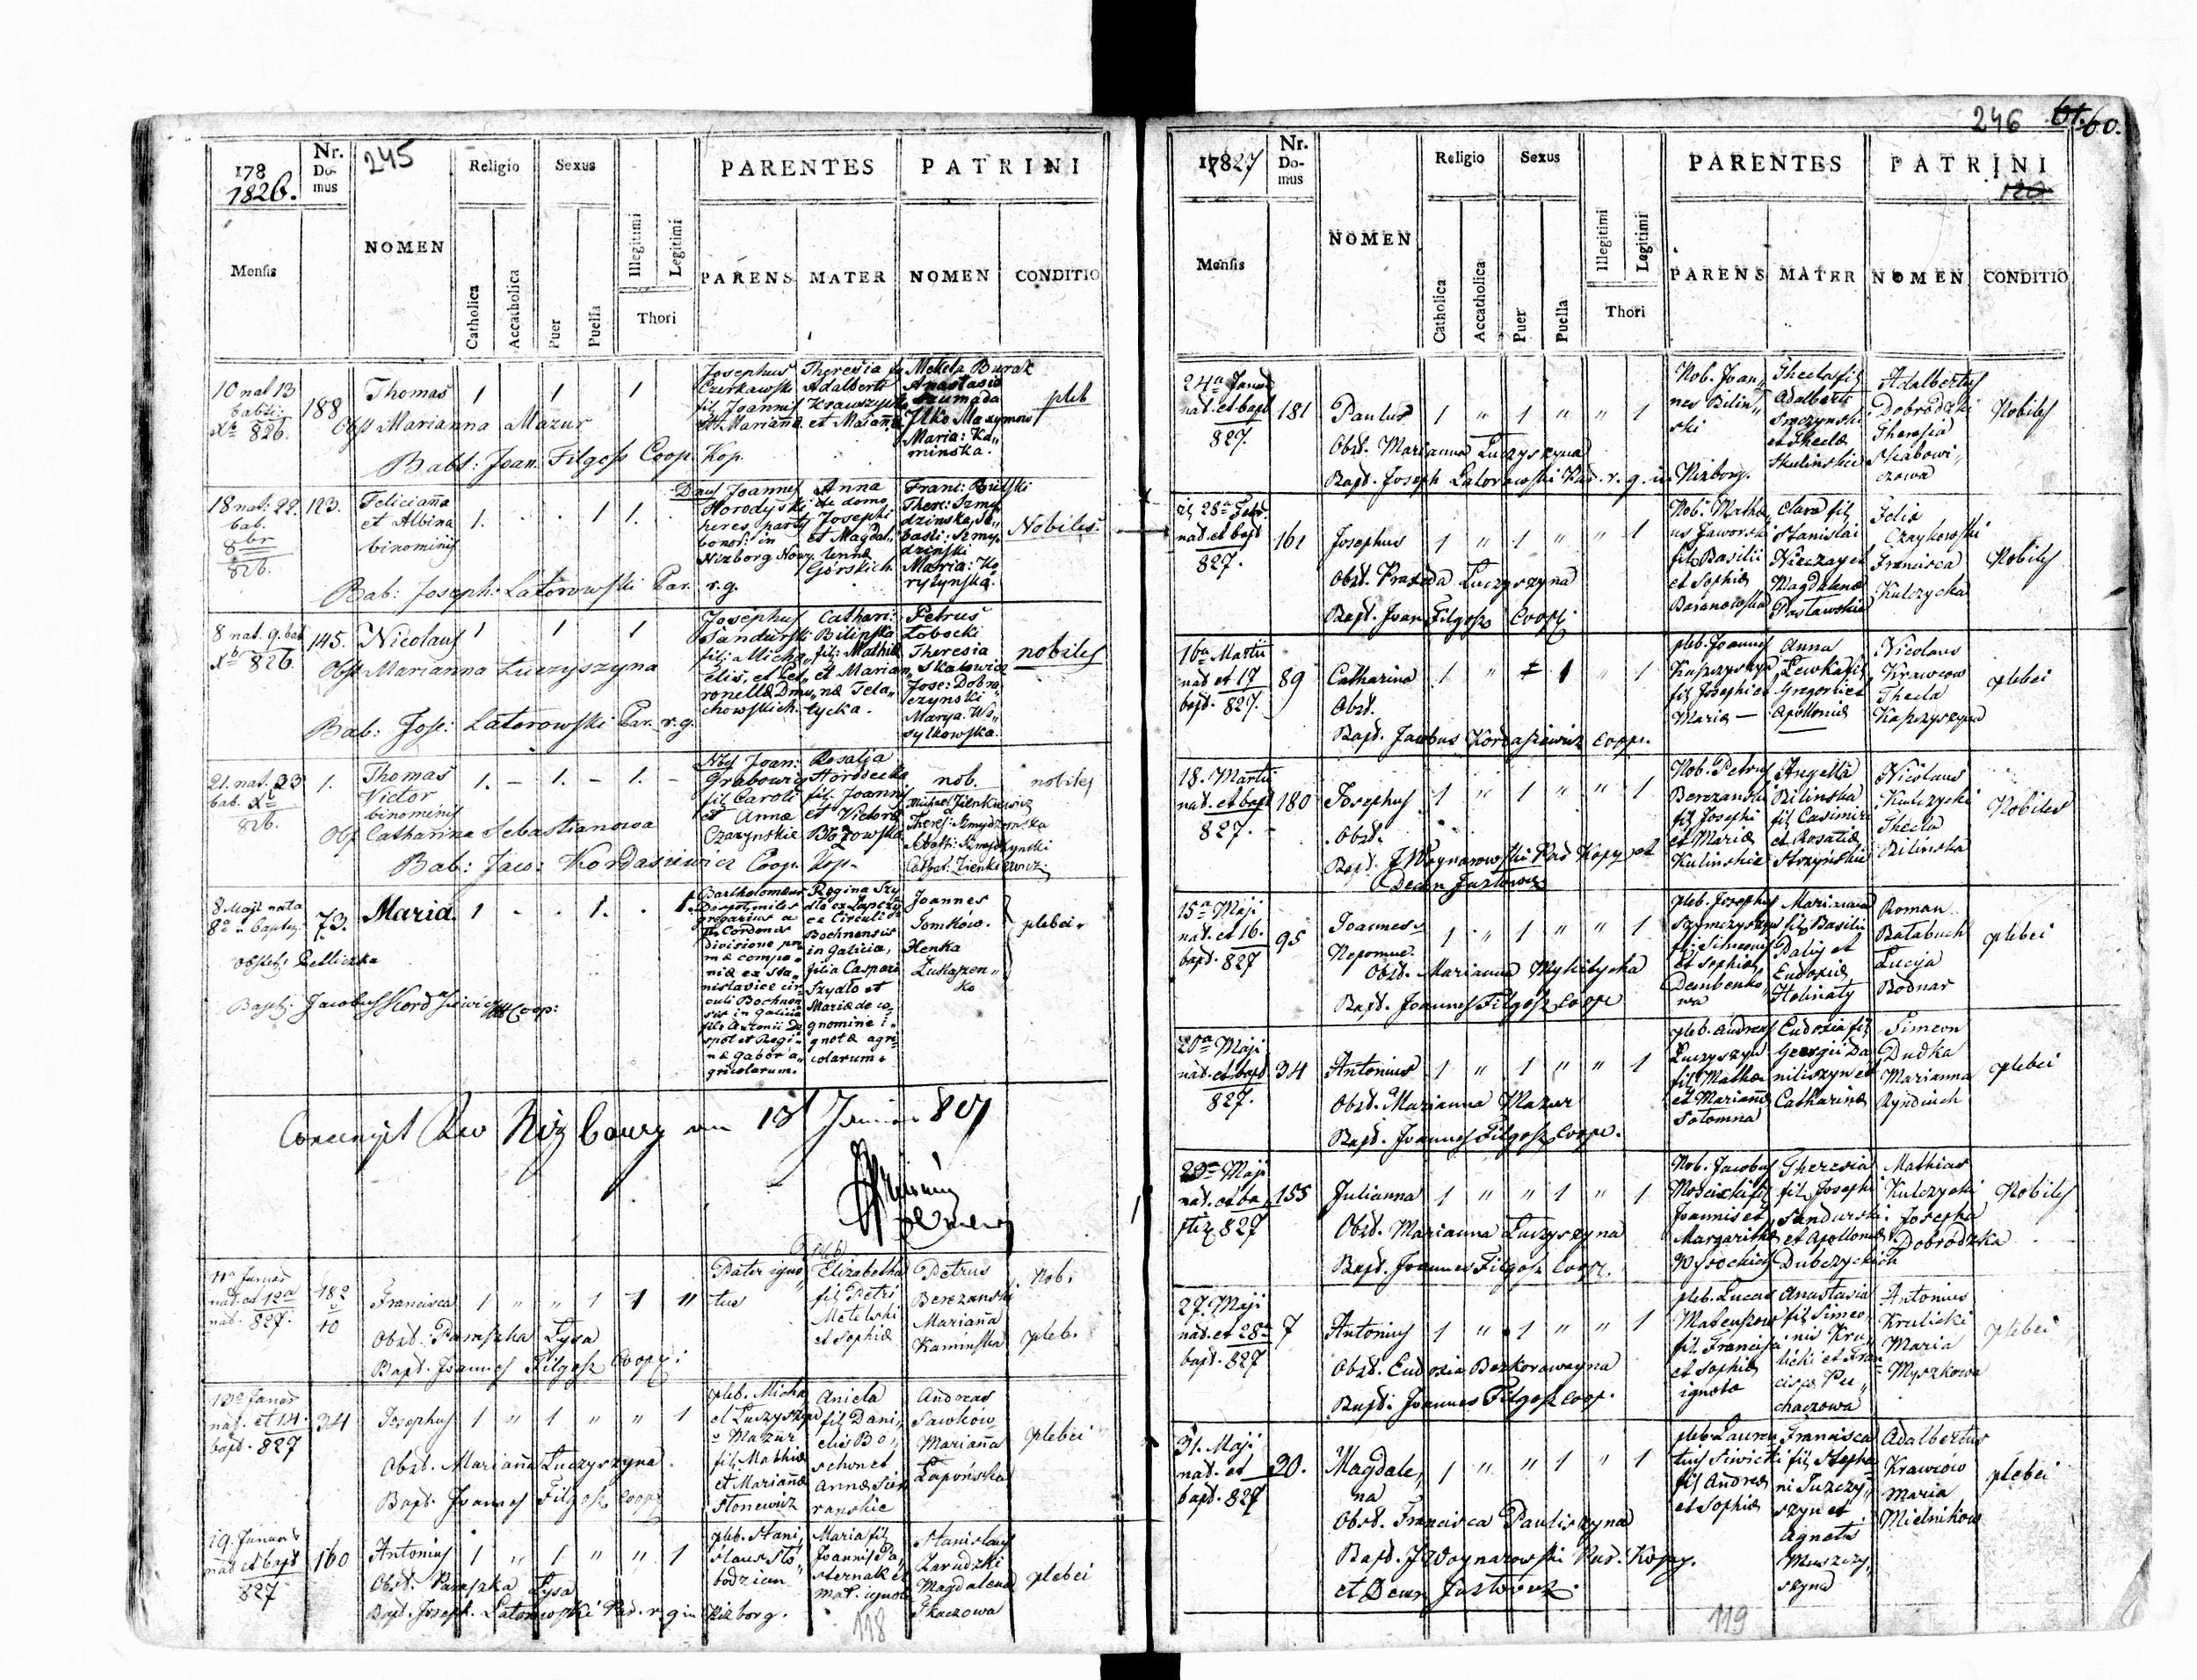 245
178
1826.
Nr. Domus
Religio
Sexus
PARENTES
PATRINI
Mensis
NOMEN
Catholica
Accatholica
Puer
Puella
Illegitimi
Legitimi
Thori
PARENS
MATER
NOMEN
CONDITIO
10 nat 13
babti:
826.
188
Thomas
1 1 1
Obst Marianna Mazur
Babt: Joan. Filgosz Coop. Kop.
Josephus
Czerkawski
fil: Joannis
et Mariañæ
Theresia
Adalberti
et Mariañæ
Mekita Burak
Anastasia
Szumada
Ilko Maxymow
Maria: Ka„
minska.
pleb
18 nat: 22.
bab.
8br
826.
123.
Feliciaña
et Albina
binominis
1. 1 1.
Bab: Joseph: Latorowski Par. r.g.
Joannes
Horodyski
heres partis
bonor: in
Nizborg Nowy
Anna
de domo
Josephi
et Magdal„
lennæ
Górskich
Franc: Bielski
Ther: Szmy„
dzinska, Se„
basti: Szmy„
dzinski
Maria: Ko
rytynska.
Nobiles
8 nat. 9. bab
Xb 826.
145.
Nicolaus
1 1 1
Obst Marianna Luczyszyna
Bab: Jose: Latorowski Par. r.g.
Josephus
Sandurski
fil: Micha„
elis, et Pet„
ronellæ Dmu„
chowskich
Cathari:
Bilinska
fil: Mathiæ
et Marian„
næ Tela„
tycka.
Petrus
Łobocki
Theresia
Skabowicz
Jose: Dobro„
czynski
Marya Wa„
sylkowska.
nobiles
21. nat. 23
bab. Xb
826.
1.
Thomas
Victor
binominis
1. – 1. – 1. –
Obst Catharina Sebastianowa
Bab: Jaco: Kordasiewicz Coop. Kop.
Joan:
Grabowicz
fil Caroli
et Annæ
Czazynskie
Rosalia
Horodecka
fil: Joannis
et Victoriæ
Błozowska
nob.
Michael Zienkiewicz
Theres: Szmydzynska
Sebasti: Szmydzynski
Cathar: Zienkiewicz
nobiles
8 Maji nata
8a „ baptiz.
73.
Maria.
1 . . 1. . 1.
Obstetz: Pelliczka
Baptz: Jacobus Kordasiewicz Coop:
Bartholomæus
Despot, miles
gregarius a
Cordonis
divisione pri
mæ compa„
niæ ex Sta„
nislavice cir„
culi Bochnen„
sis in Galicia
filii Antonii De
spot et Regi„
næ Gabor a„
gricolarum.
Regina Szy
dło ex Łapczy
ca Circuli
Bochnensis
in Galicia,
filia Caspari
Szydło et
Mariæ de co„
gnomine i„
gnotæ agri
colarum.
Joannes
Tomków.
Henka
Łukaszen„
ko
plebei.
11a Januar
nat. et 12a
827.
182
10
Francisca
1 „ „ 1 1 „
Obst. Paraszka Lysa
Bapt. Joannes Filgosz Coop:
Pater igno„
tus
Elizabetha
fil Petri
Metelski
et Sophiæ
Petrus
Berezanski
Mariaña
Kaminska
Nob.
pleb.
Januar
nat. et 14.
bapt. 827
34
Josephus
1 „ 1 „ „ 1
Obst. Mariaña Luczyszyna.
Bapt. Joannes Filgosz Coop
pleb. Micha
el Luczyszyn
Mazur
fil. Mathiæ
et Mariañæ
Stonewicz
Aniela
fil Dani„
elis Bo„
et
Annæ
Andreas
Sawkow
Mariaña
Łapońska
plebei
19. Januar
nat et bapt
827
160
Antonius
1 „ 1 „ „ 1
Obst. Paraszka Lysa
Bapt. Joseph. Latorowski Par. r. g in Nizborg.
pleb. Stani„
slaus Slo„
bodzian
Maria fil
Joannis Pa„
sternak et
mat. ignota
Stanislaus
Zarudzki
Magdalena
Tkaczowa
plebei
118
246
60.
17827
Nr. Domus
Religio
Sexus
PARENTES
PATRINI
Mensis
NOMEN
Catholica
Accatholica
Puer
Puella
Illegitimi
Legitimi
Thori
PARENS
MATER
NOMEN
CONDITIO
24a Januar
nat. et bapt
827.
181
Paulus
1 „ 1 „ „ 1
Obst. Marianna Luczyszyna
Bapt. Joseph Latorowski Par. r. g. in Nizborg.
Nob. Joan„
nes Bilin„
ski
Thecla fil
Adalberti
et Theclæ
Adalbertus
Dobrodzki
Theresia
Skabowi„
czowa
Nobiles
28a Febr
nat. et bapt
827.
161
Josephus
1 „ 1 „ „ 1
Obst. Praxeda Luczyszyna
Bapt. Joan. Filgosz Coop:
Nob. Mathæ
us Jaworski
fil Basilii
et Sophiæ
Baranowskie
Clara fil
Stanislai
Nieczay et
Magdalenæ
Paslawskie
Felix
Czaykowski
Francisca
Kulczycka
Nobiles
16a Martii
nat et 17
bapt. 827.
89
Catharina
1 „ 1 „ 1
Obst.
Bapt. Jacobus Kordasiewicz Coopr.
pleb. Joannes
fil Josephi et
Mariæ –
Anna
Lewka fil
Gregorii et
Apolloniæ
Nicolaus
Krawcow
Thecla
plebei
18. Martii
nat. et bapt
827.
180
Josephus
1 „ 1 „ „ 1
Obst.
Bapt. J Woynarowski Par Kopy et
Decan Justowicz
Nob. Petrus
Berezanski
fil Josephi
et Mariæ
Kulinskie
Angella
Bilinska
fil Casimiri
et Rosaliæ
Nicolaus
Kulczycki
Thecla
Bilinska
Nobiles
15a Maji
nat. et 16.
bapt. 827
95
Joannes
Nepomuc.
1 „ 1 „ „ 1
Obst. Marianna Mykitycha
Bapt. Joannes Filgosz Coop
pleb. Josephus
Szymczyszyn
fil. Simeonis
et Sophiæ
Dembenko„
wa
Marianna
fil Basilii
Paliy et
Eudoxiæ
Holinaty
Roman
Batabuch
Lucya
Bodnar
plebei
20a Maji
nat. et bapt
827.
34
Antonius
1 „ 1 „ „ 1
Obst. Marianna Mazur
Bapt. Joannes Filgosz Coop.
pleb. Andreas
Luczyszyn
fil Mathæi
et Mariañæ
Solomna
Eudoxia fil
Georgii Da
niliszyn et
Catharinæ
Simeon
Dudka
Marianna
plebei
29a Maji
nat. et ba„
ptiz 827
155
Julianna
1 „ „ 1 „ 1
Obst. Marianna Luczyszyna
Bapt. Joannes Filgosz Coop.
Nob. Jacobus
Moscicki fil
Joannis et
Margarithæ
Wysockich
Theresia
fil Josephi
Sandurski
et Apolloniæ
Dubczyckich
Mathias
Kulczycki
Josepha
Dobrodzka
Nobiles
27. Maji
nat. et 28a
bapt. 827
7
Antonius
1 „ 1 „ „ 1
Obst. Eudoxia Bezkorowayna
Bapt. Joannes Filgosz Coop.
pleb. Lucas
fil. Francisci
et Sophiæ
ignota
Anastasia
fil Simeo„
nis Kru„
licki et Fran
ciscæ Pu„
chaczowa
Antonius
Krulicki
Maria
Myszkowa
plebei
31. Maji
nat. et
bapt. 827
20.
Magdale„
na
1 „ „ 1 „ 1
Obst. Francisca Pauliszyna
Bapt. J Woynarowski Par. Kopy.
et Decan Justowicz.
pleb. Lauren
tius Siwicki
fil Andreæ
et Sophiæ
Francisca
fil Stepha
ni
szyn et
Agnetis
Muszczy„
szyna
Adalbertus
Krawcow
Maria
Mielnikow
plebei
119